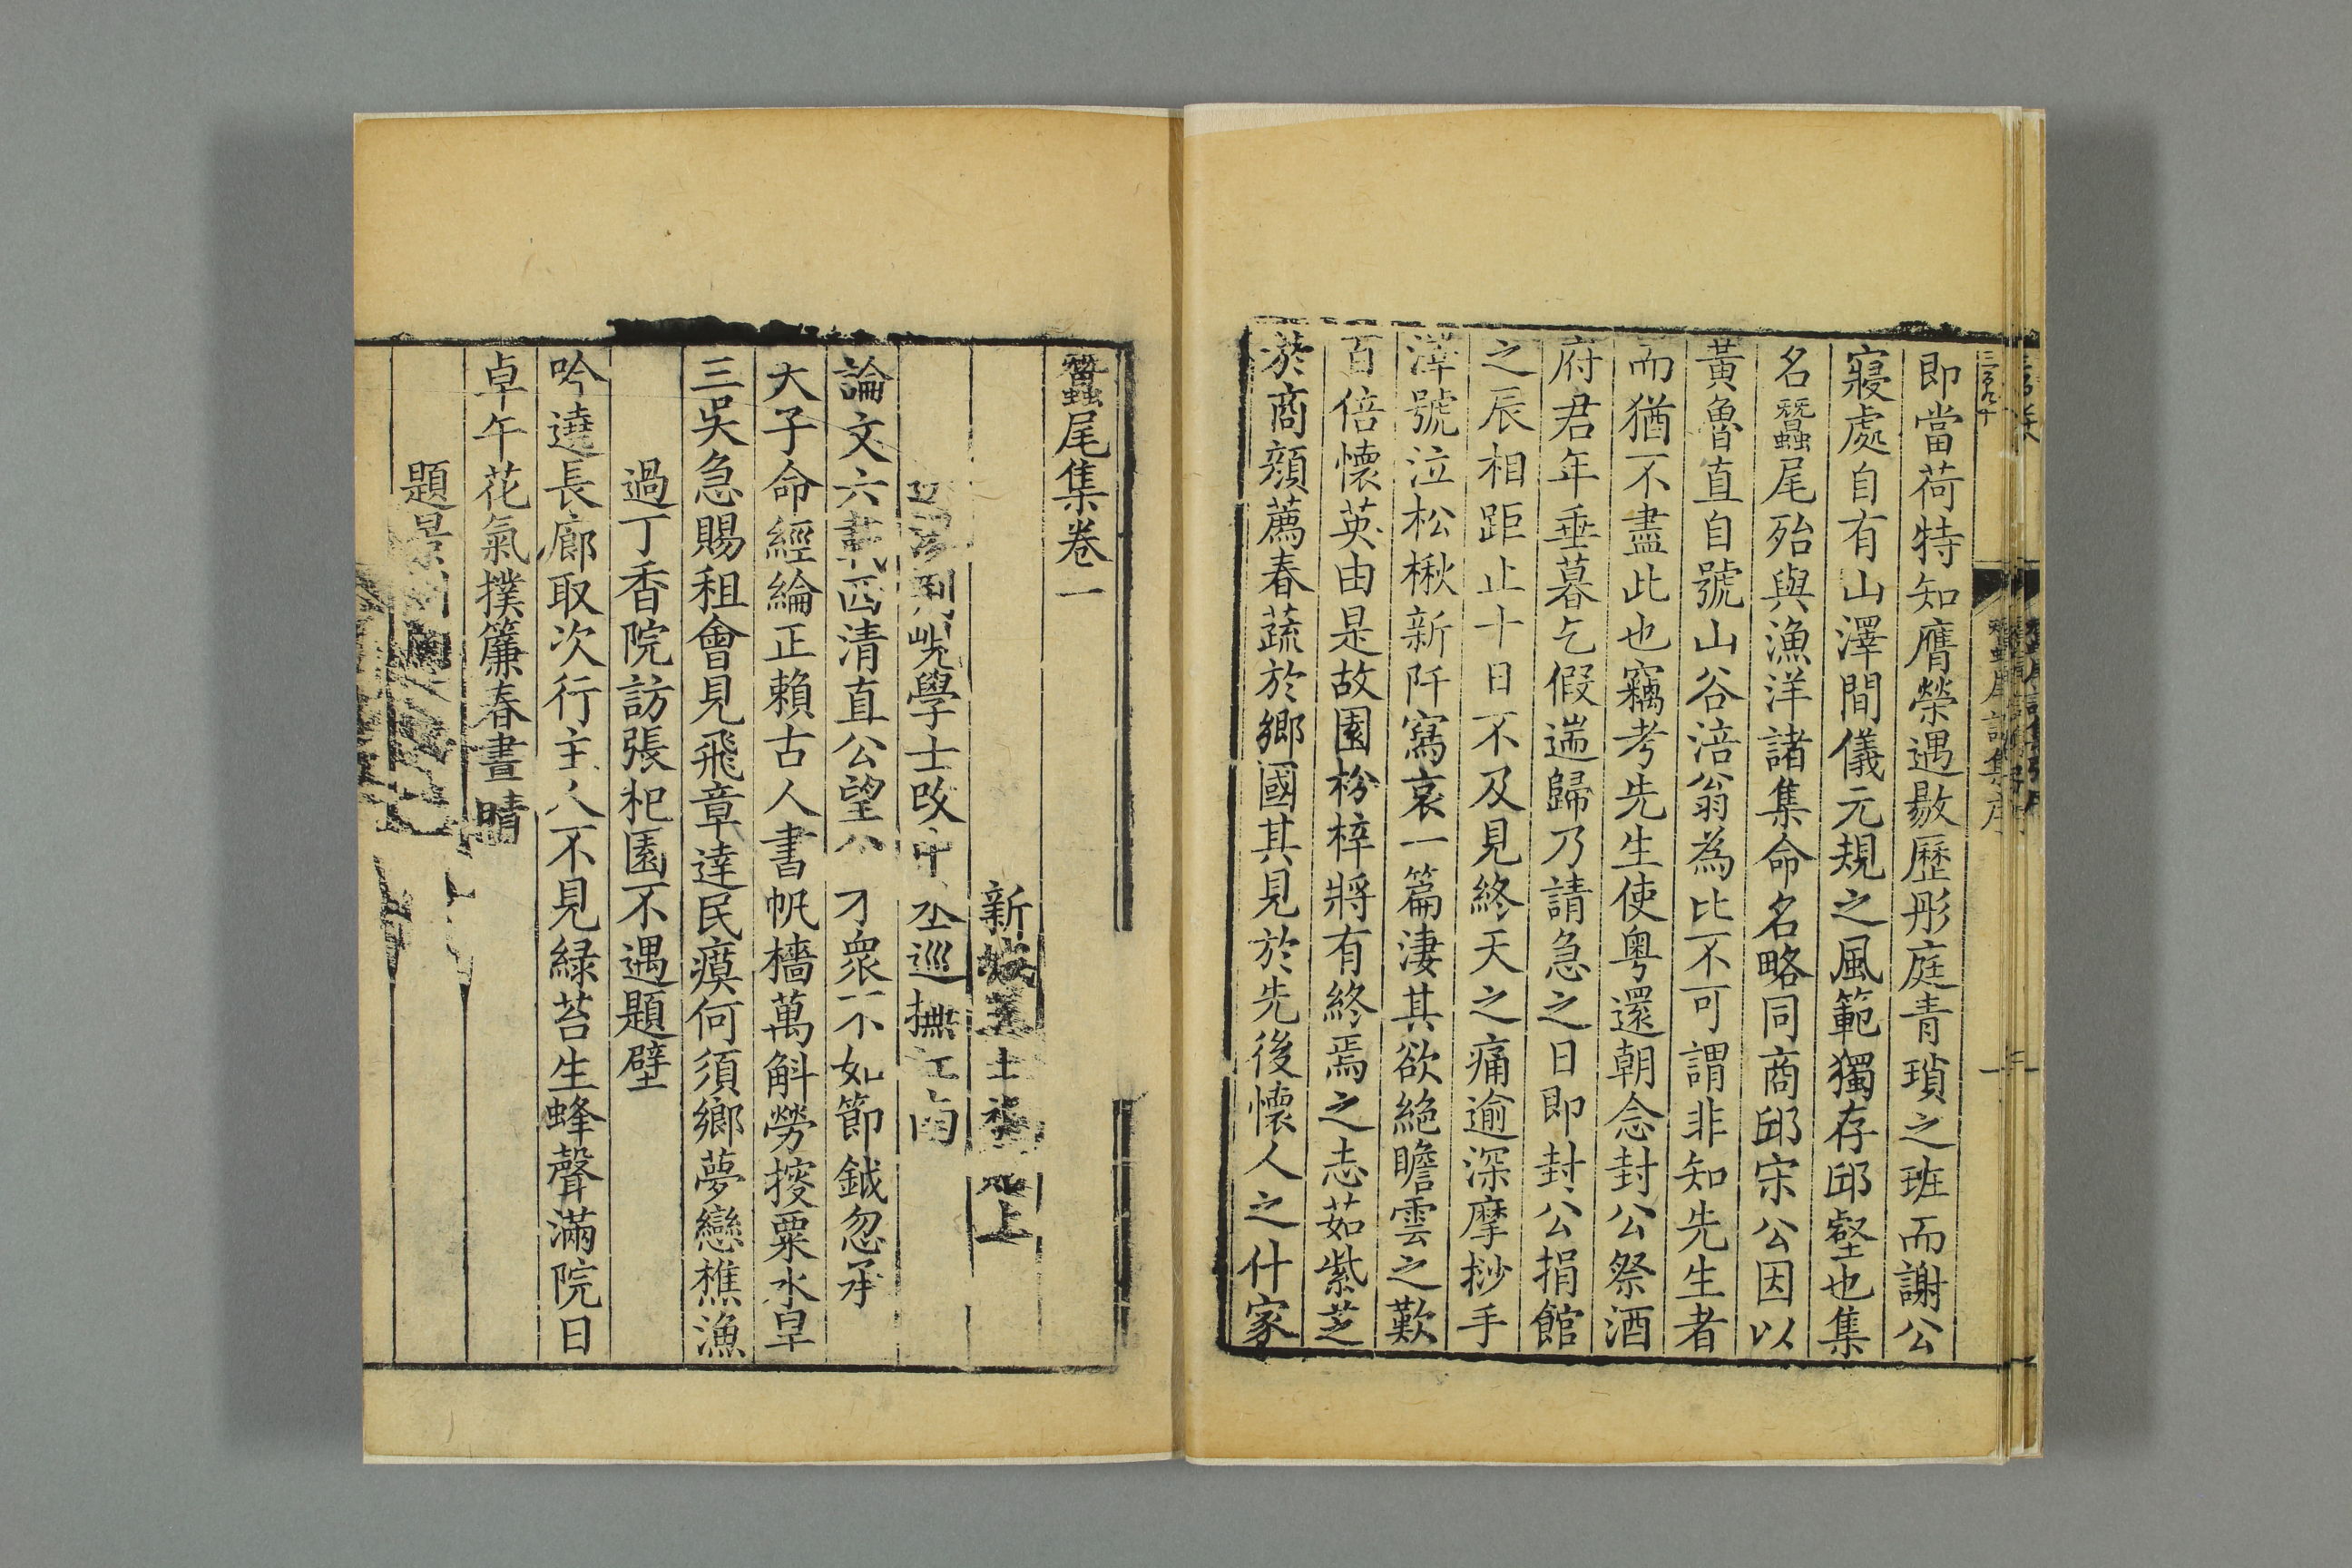 即當荷特知膺榮遇敭歷彤庭青瑣之班而謝公
寢處自有山澤間儀元規之風範獨存邱壑也集
名蠶尾殆與漁洋諸集命名略同商邱宋公因以
黃魯直自號山谷涪翁為比不可謂非知先生者
而猶不盡此也竊考先生使粤還朝念封公祭酒
府君年垂暮乞假遄歸乃請急之日即封公捐館
之辰相距止十日不及見終天之痛逾深摩挱手
澤號泣松楸新阡寫哀一篇淒其欲絕瞻雲之歎
百倍懷英由是故園枌梓將有終焉之志茹紫芝
於商顔薦春蔬於鄉國其見於先後懷人之什家
蠶尾集卷一
新城王士
學士改中丞巡撫江南
論文六載西清直公望公才衆不如節鉞忽承
大子命經綸正賴古人書帆檣萬斛勞挍粟水旱
三吳急賜租會見飛章達民瘼何須鄉夢戀樵漁
過丁香院訪張杞園不遇題壁
吟遶長廊取次行主人不見緑苔生蜂聲滿院日
卓午花氣撲簾春晝晴
題景